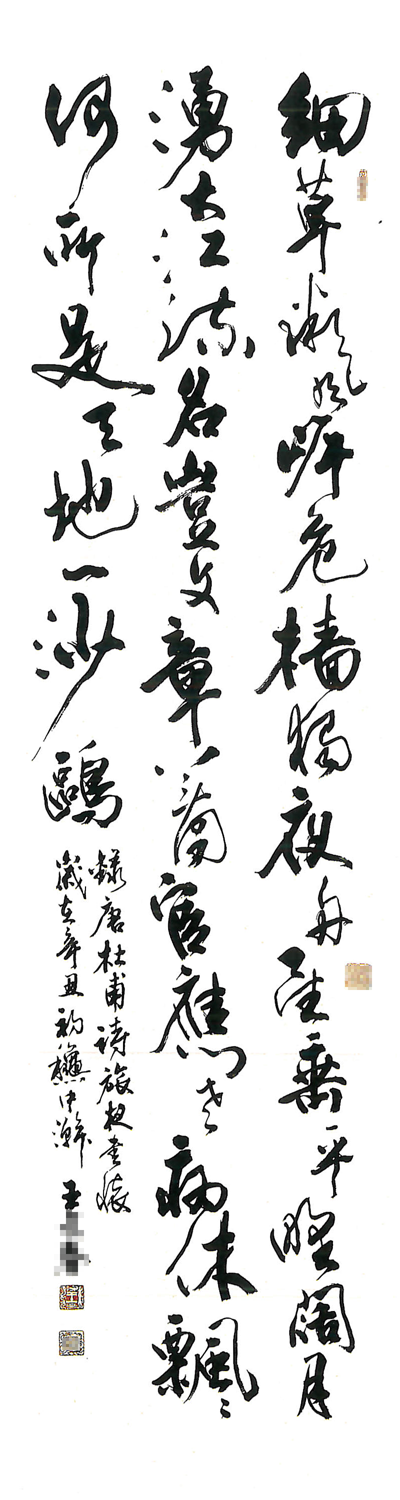 細草微風岸危檣獨夜舟星垂平野闊月
湧大江流名豈文章著官應老病休飄〻
何所是天地一沙鷗
錄唐杜甫詩旅夜書懷
歲在辛丑初龝中澣 王